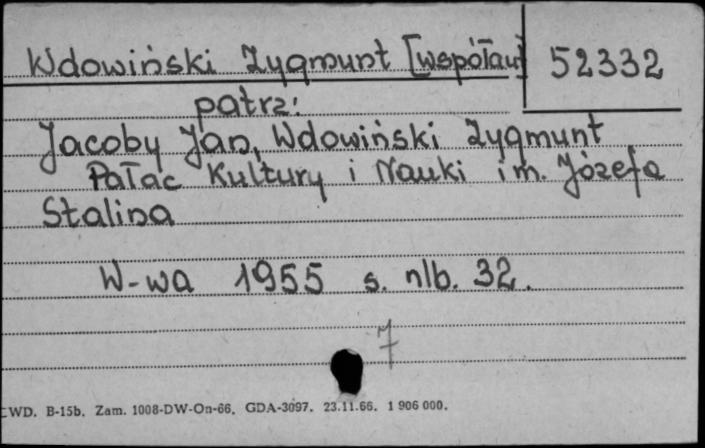 Wdowiński Zygmunt [współaut] 52332
patrz:
Jacoby Jan, Wdowiński Zygmunt
Pałac Kultury i Nauki im. Józefa
Stalina
W-wa 1955 s. nlb. 32.
7
WD. B-15b. Zam. 1008-DW-On-66. GDA-3097. 23.11.66. 1 906 000.